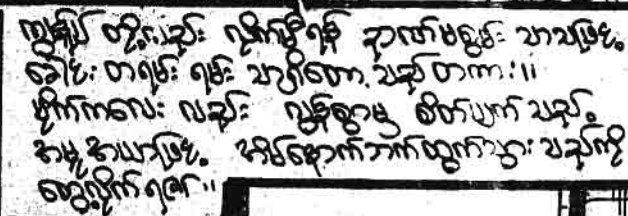 ကျွန်ုပ် တို့လည်း လိုက်မမှီရန် ဉာဏ်မရွှမ်း သာသဖြင့်
ခေါင်း တရမ်း ရမ်း သာရှိတော့ သည် တကား။
မိုက်ကလေး လည်း လွန်စွာမှ စိတ်ပျက် သည့်
အမူ အယာဖြင့် အိမ်နောက်ဘက်ထွက်သွား သည်ကို
တွေ့လိုက် ရ၏။